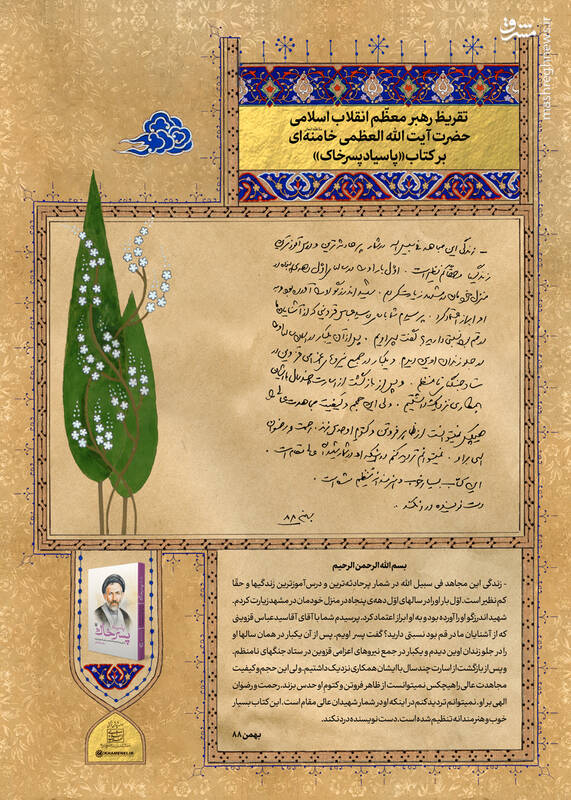 مشرق
mashreghnews.ir
تقریظ رهبر معظّم انقلاب اسلامی
حضرت آیت الله العظمی خامنه‌ای
بر کتاب «پاسیاد پسر خاک»
- زندگی این مجاهد فی سبیل الله در شمار پرحادثه‌ترین و درس‌آموزترین
زندگیها و حقّا کم نظیر است. اوّل بار او را در سالهای اوّل دهه‌ی پنجاه در
منزل خودمان در مشهد زیارت کردم. شهید اندرزگو او را آورده بود و به
او ابراز اعتماد کرد. پرسیدم شما با آقای سیدعباس قزوینی که از آشنایان ما
در قم بود نسبتی دارید؟ گفت پسر اویم. پس از آن یکبار در همان سالها او را
در جلو زندان اوین دیدم و یکبار در جمع نیروهای اعزامی قزوین در
ستاد جنگهای نامنظم. و پس از بازگشت از اسارت چند سال با ایشان
همکاری نزدیک داشتیم. ولی این حجم و کیفیت مجاهدت عالی را
هیچکس نمیتوانست از ظاهر فروتن و کتوم او حدس بزند. رحمت و رضوان
الهی بر او. نمیتوانم تردید کنم در اینکه او در شمار شهیدان عالی مقام است.
این کتاب بسیار خوب و هنرمندانه تنظیم شده است.
دست نویسنده درد نکند.
بهمن ۸۸
بسم الله الرحمن الرحیم
- زندگی این مجاهد فی سبیل الله در شمار پرحادثه‌ترین و درس‌آموزترین زندگیها و حقّا
کم نظیر است. اوّل بار او را در سالهای اوّل دهه‌ی پنجاه در منزل خودمان در مشهد زیارت کردم.
شهید اندرزگو او را آورده بود و به او ابراز اعتماد کرد. پرسیدم شما با آقای آسیدعباس قزوینی
که از آشنایان ما در قم بود نسبتی دارید؟ گفت پسر اویم. پس از آن یکبار در همان سالها او
را در جلو زندان اوین دیدم و یکبار در جمع نیروهای اعزامی قزوین در ستاد جنگهای نامنظم.
و پس از بازگشت از اسارت چند سال با ایشان همکاری نزدیک داشتیم. ولی این حجم و کیفیت
مجاهدت عالی را هیچکس نمیتوانست از ظاهر فروتن و کتوم او حدس بزند. رحمت و رضوان
الهی بر او. نمیتوانم تردید کنم در اینکه او در شمار شهیدان عالی مقام است. این کتاب بسیار
خوب و هنرمندانه تنظیم شده است. دست نویسنده درد نکند.
بهمن ۸۸
پسر خاک
@KHAMENEI.IR